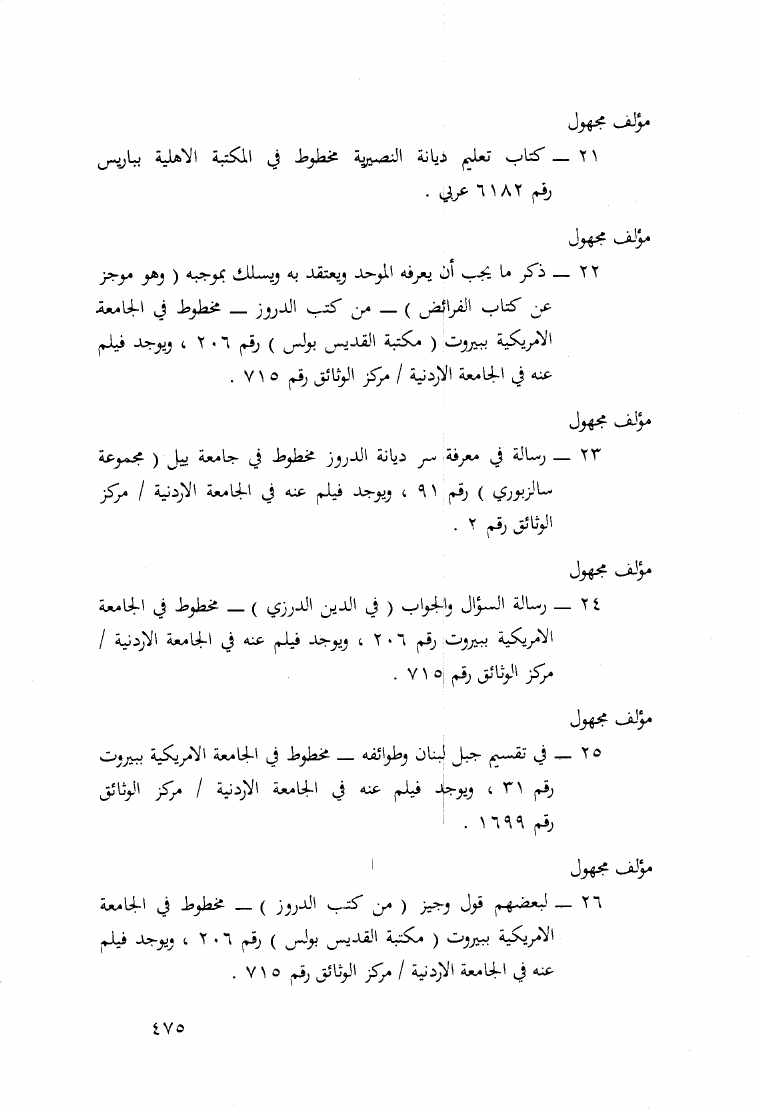 مؤلف مجهول
٢١ ــ كتاب تعليم ديانة النصيرية مخطوط في المكتبة الاهلية بباريس
رقم ٦١٨٢ عربي .
مؤلف مجهول
٢٢ ــ ذكر ما يجب أن يعرفه الموحد ويعتقد به ويسلك بموجبه ( وهو موجز
عن كتاب الفرائض ) ــ من كتب الدروز ــ مخطوط في الجامعة
الامريكية ببيروت ( مكتبة القديس بولس ) رقم ٢٠٦ ، ويوجد فيلم
عنه في الجامعة الاردنية / مركز الوثائق رقم ٧١٥ .
مؤلف مجهول
٢٣ ــ رسالة في معرفة سر ديانة الدروز مخطوط في جامعة ييل ( مجموعة
سالزبوري ) رقم ٩١ ، ويوجد فيلم عنه في الجامعة الاردنية / مركز
الوثائق رقم ٢ .
مؤلف مجهول
٢٤ ــ رسالة السؤال والجواب ( في الدين الدرزي ) ــ مخطوط في الجامعة
الامريكية ببيروت رقم ٢٠٦ ، ويوجد فيلم عنه في الجامعة الاردنية /
مركز الوثائق رقم ٧١٥ .
مؤلف مجهول
٢٥ ــ في تقسيم جبل لبنان وطوائفه ــ مخطوط في الجامعة الامريكية ببيروت
رقم ٣١ ، ويوجد فيلم عنه في الجامعة الاردنية / مركز الوثائق
رقم ١٦٩٩ .
مؤلف مجهول
٢٦ ــ لبعضهم قول وجيز ( من كتب الدروز ) ــ مخطوط في الجامعة
الامريكية ببيروت ( مكتبة القديس بولس ) رقم ٢٠٦ ، ويوجد فيلم
عنه في الجامعة الاردنية / مركز الوثائق رقم ٧١٥ .
٤٧٥